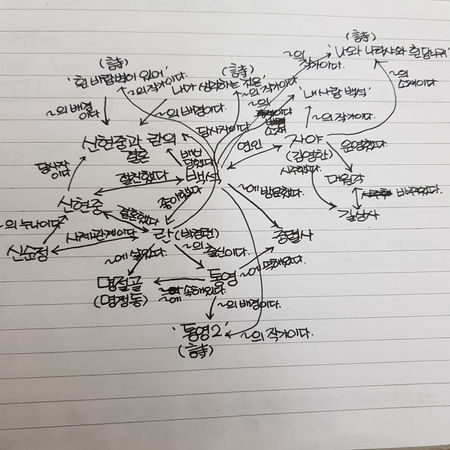 (詩)
'나와 나타샤와 흰 당나귀'
(詩)
~의 작가이다.
'흰 바람벽이 있어'
(詩)
'내가 생각하는 것은'
~의 작가이다.
~의 작가이다.
'내 사랑 백석'
~의 소재이다.
~의 배경이다.
~의 배경이다.
~의 소재
~의 작가이다.
신현중과 란의 결혼
당사자이다.
배신 당했다.
연인
자야
(김영한)
운영했다.
당사자이다.
절친했다
백석
시주했다.
대원각
바뀌었다.
신현중
좋아했다
~에 방문했다.
길상사
~의 누나이다.
결혼했다
신순정
사제관계이다.
란(박경련)
충렬사
~의 출신이다.
~에 살았다.
통영
~에
명정골
(명정동)
~에 속해있다.
~의 배경이다.
'통영 2'
(詩)
~의 작가이다.